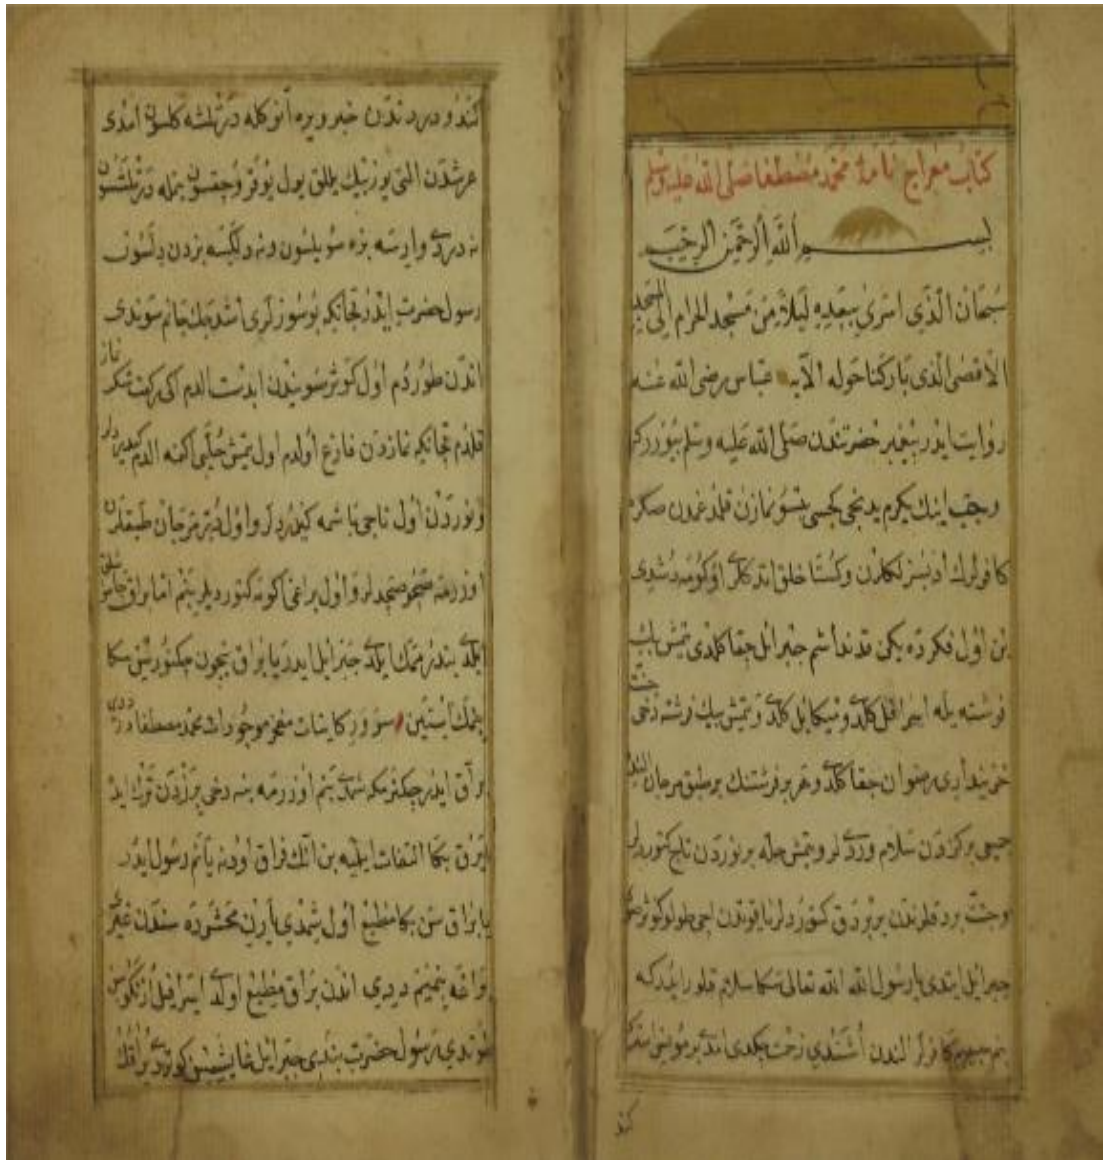 كتاب معراج نامهٔ محمد مصطفا صلى الله عليه وسلم
بسم الله الرحمن الرحيم
سبحان الذي اسرى بعبده ليلا من مسجد الحرام الى المسجد
الاقصى الذي باركنا حوله الآية عباس رضى الله عنه
روايت ايدر پيغمبر حضرتندن صلى الله عليه وسلم بيوررکه
رجب اينك يكرم يدنجى كجسى يتسو نمازن قلدم
كافرلرك
بن اول فكرده يكن قرنداشم جبرائل جقا كلدى يتمش بيك
فرشته يله اسرافل كلدى وميكايل كلدى ويتمش بيك فرشته دخى جنت
خزينه دارى رضوان جقا كلدى وهر بر فرشتنك بر طبق مرجان النده
جميعى بر كزدن سلام ويردى لر ويتمش حله بر نوردن تاج كتوردلر
وجنت بردقلرندن بر براق كتوردلر ياقوتدن اچى طولو كوثر صوى
جبرائل ايتدى يا رسول الله الله تعالى سكا سلام قلور ايدركه
بنم حبيبم كافرلر الندن
كندو دردندن خبر ويره آنوكله درتلشه كلسون امدى
عرشدن التى يوز بيك يللق يول يوقرو چقسون بنمله درتلشسون
نه دردى وارسه بزه سويلسون ونه دلكسه بزدن دلسون
رسول حضرت ايدر قچانكه بو سوزلرى اشدجك جانم سوندى
اندن طوردم اول كوثر سويندن ابدست الدم اكى ركعت شكر نماز
قلدم قچانكه نمازدن فارغ اولدم اول يتمش حله يى اكنمه الدم كيديردلر
ونوردن اول تاجى باشمه كيدردلر واول در مرجان طبقلرن
اوزرمه صچو صچدلر واول براغى اكومه كتورديلر بنم اما براق
ايلدى بندرممك ايلدى جبرايل ايدر يا براق نيچون چكنورسن سكا
بنمك ايستين سرور كاينات مفخر موجودات محمد مصطفادر ديدى
براق ايدر چكنورمكه شمدى بنم اوزرمه بنه دخى
ايرق بكا التفات ايليه بن انك فراق اودنه يانم رسول ايدر
يا براق سن بكا مطيع اول شمدى يارين محشرده سندن غيرى
براغه بنميم ديدى اندن براق مطيع اولدى اسرافل ازنكوسن
طوتدى رسول حضرت بندى جبرايل غاشيسن كوتردى براقك
كند